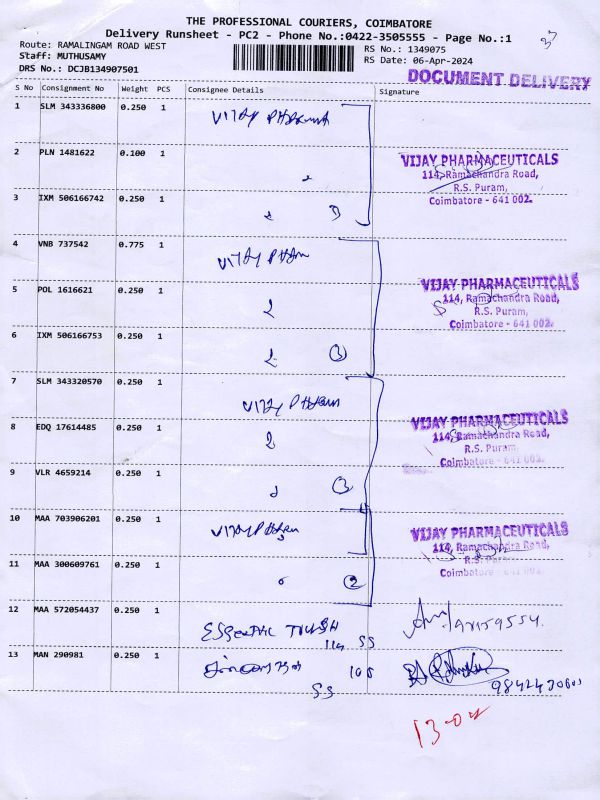 THE PROFESSIONAL COURIERS, COIMBATORE
Delivery Runsheet - PC2 - Phone No.:0422-3505555 - Page No.:1
Route: RAMALINGAM ROAD WEST
RS No.: 1349075
Staff: MUTHUSAMY
RS Date: 06-Apr-2024
DRS No.: DCJB134907501
DOCUMENT DELIVERY
S No Consignment No Weight PCS Consignee Details Signature
1 SLM 343336800 0.250 1 VIJAY PHARMA
2 PLN 1481622 0.100 1
VIJAY PHARMACEUTICALS
114, Ramachandra Road,
R.S. Puram,
Coimbatore - 641 002.
3 IXM 506166742 0.250 1
4 VNB 737542 0.775 1 VIJAY PHARM
5 POL 1616621 0.250 1
VIJAY PHARMACEUTICALS
114, Ramachandra Road,
R.S. Puram,
Coimbatore - 641 002.
6 IXM 506166753 0.250 1 3
7 SLM 343320570 0.250 1 VIJAY PHARM
8 EDQ 17614485 0.250 1
VIJAY PHARMACEUTICALS
114, Ramachandra Road,
R.S. Puram,
Coimbatore - 641 002.
9 VLR 4659214 0.250 1 3
10 MAA 703906201 0.250 1 VIJAY PHARM
VIJAY PHARMACEUTICALS
114, Ramachandra Road,
R.S. Puram,
Coimbatore - 641 002.
11 MAA 300609761 0.250 1 2
12 MAA 572054437 0.250 1
114 SS
13 MAN 290981 0.250 1
108
SS